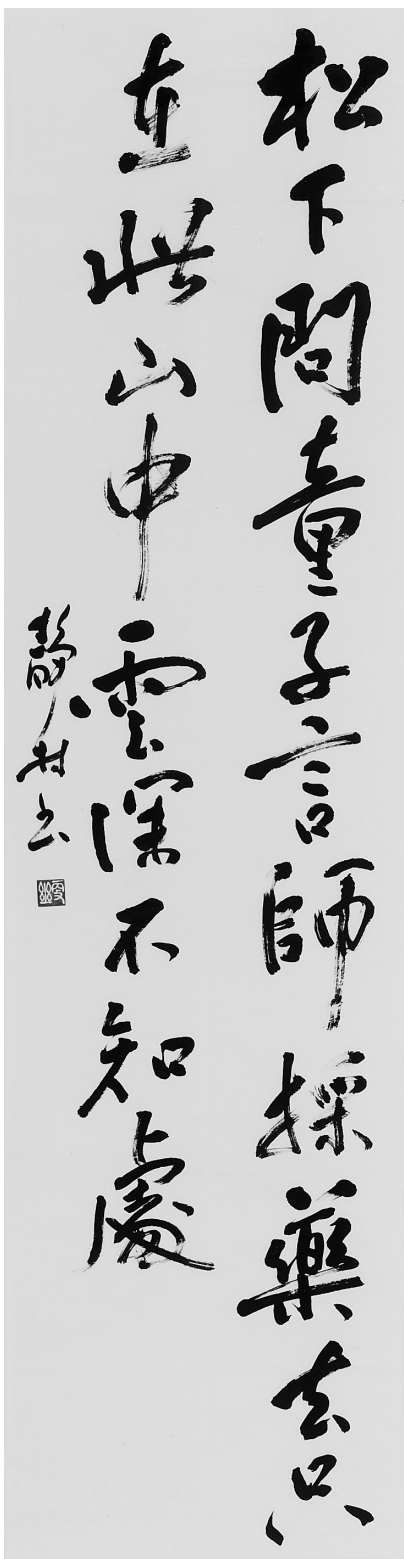 松下問童子言師採藥去只
在此山中雲深不知處
靜村書